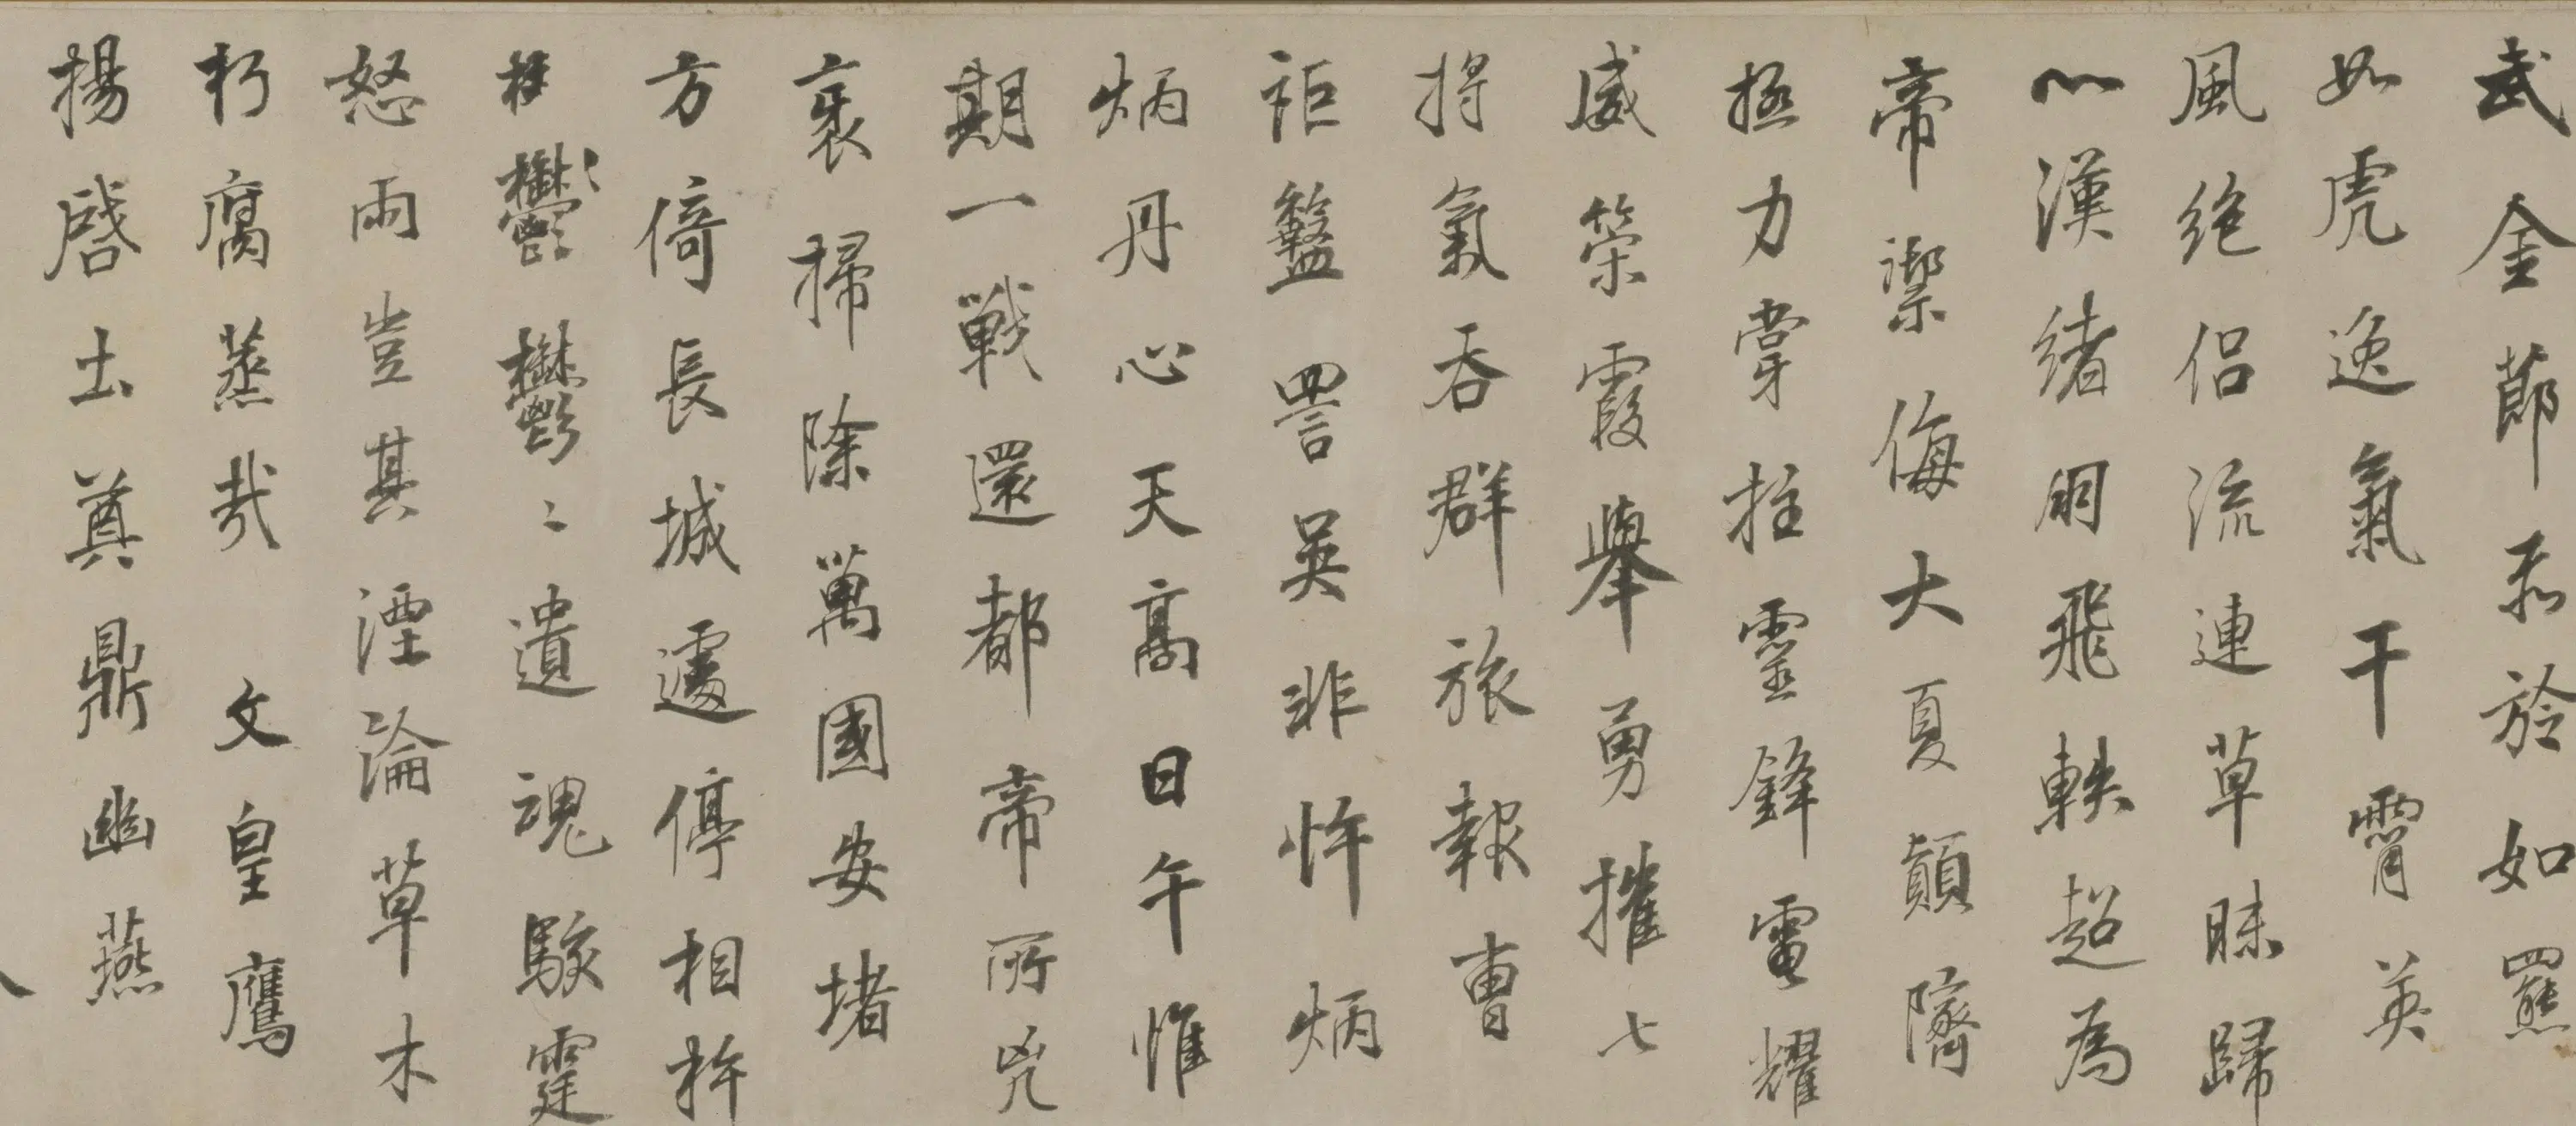 武金節忝於如羆
如虎逸氣干霄英
風絶侶流連草昧歸
心漢緒羽飛軼超為
帝禦侮大夏顛隮
極力掌拄靈鋒電耀
威策霞舉勇摧七
將氣吞群旅報曹
詎盭詈吳非忤炳
炳丹心天高日午惟
期一戰還都帝所兇
衺掃除萬國安堵
方倚長城遽停相杵
欝欝遺魂駭霆
怒雨豈其湮淪草木
朽腐蒸哉 文皇鷹
揚啓土奠鼎幽燕